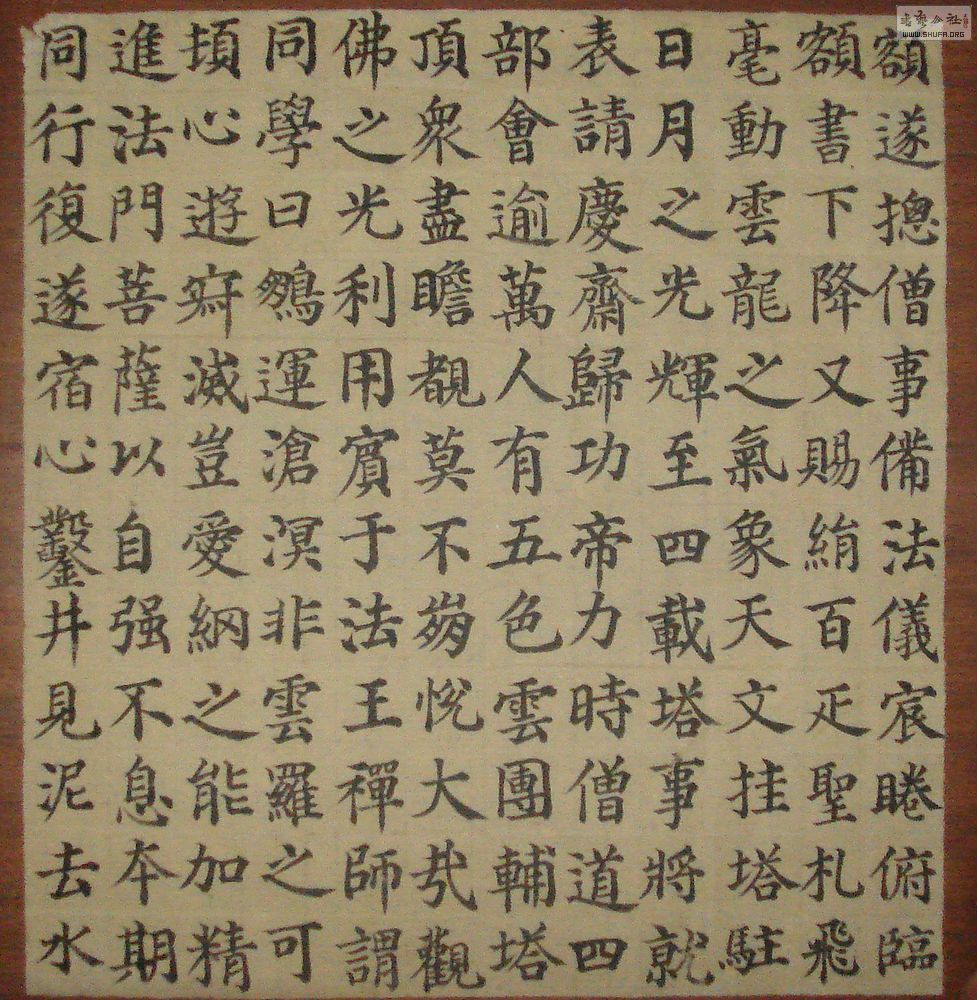 額遂摠僧事備法儀宸睠俯臨
額書下降又賜絹百疋聖札飛
毫動雲龍之氣象天文挂塔駐
日月之光輝至四載塔事將就
表請慶齋歸功帝力時僧道四
部會逾萬人有五色雲團輔塔
頂衆盡瞻覩莫不崩悅大哉觀
佛之光利用賓于法王禪師謂
同學曰鵷運滄溟非雲羅之可
頊心遊寂滅豈愛網之能加精
進法門菩薩以自强不息本期
同行復遂宿心鑿井見泥去水
書法公社
WWW.SHUFA.ORG